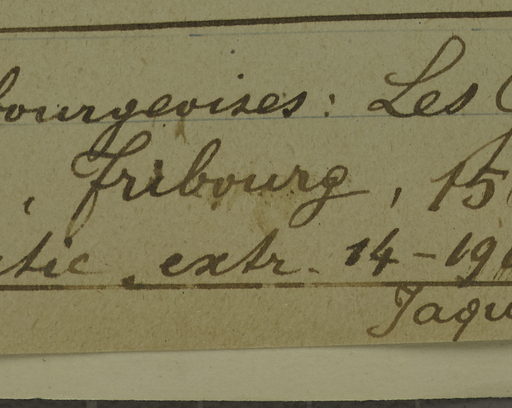 bourgeoises: Les
, Fribourg, 15
tic. extr. 14-19
Jaqu